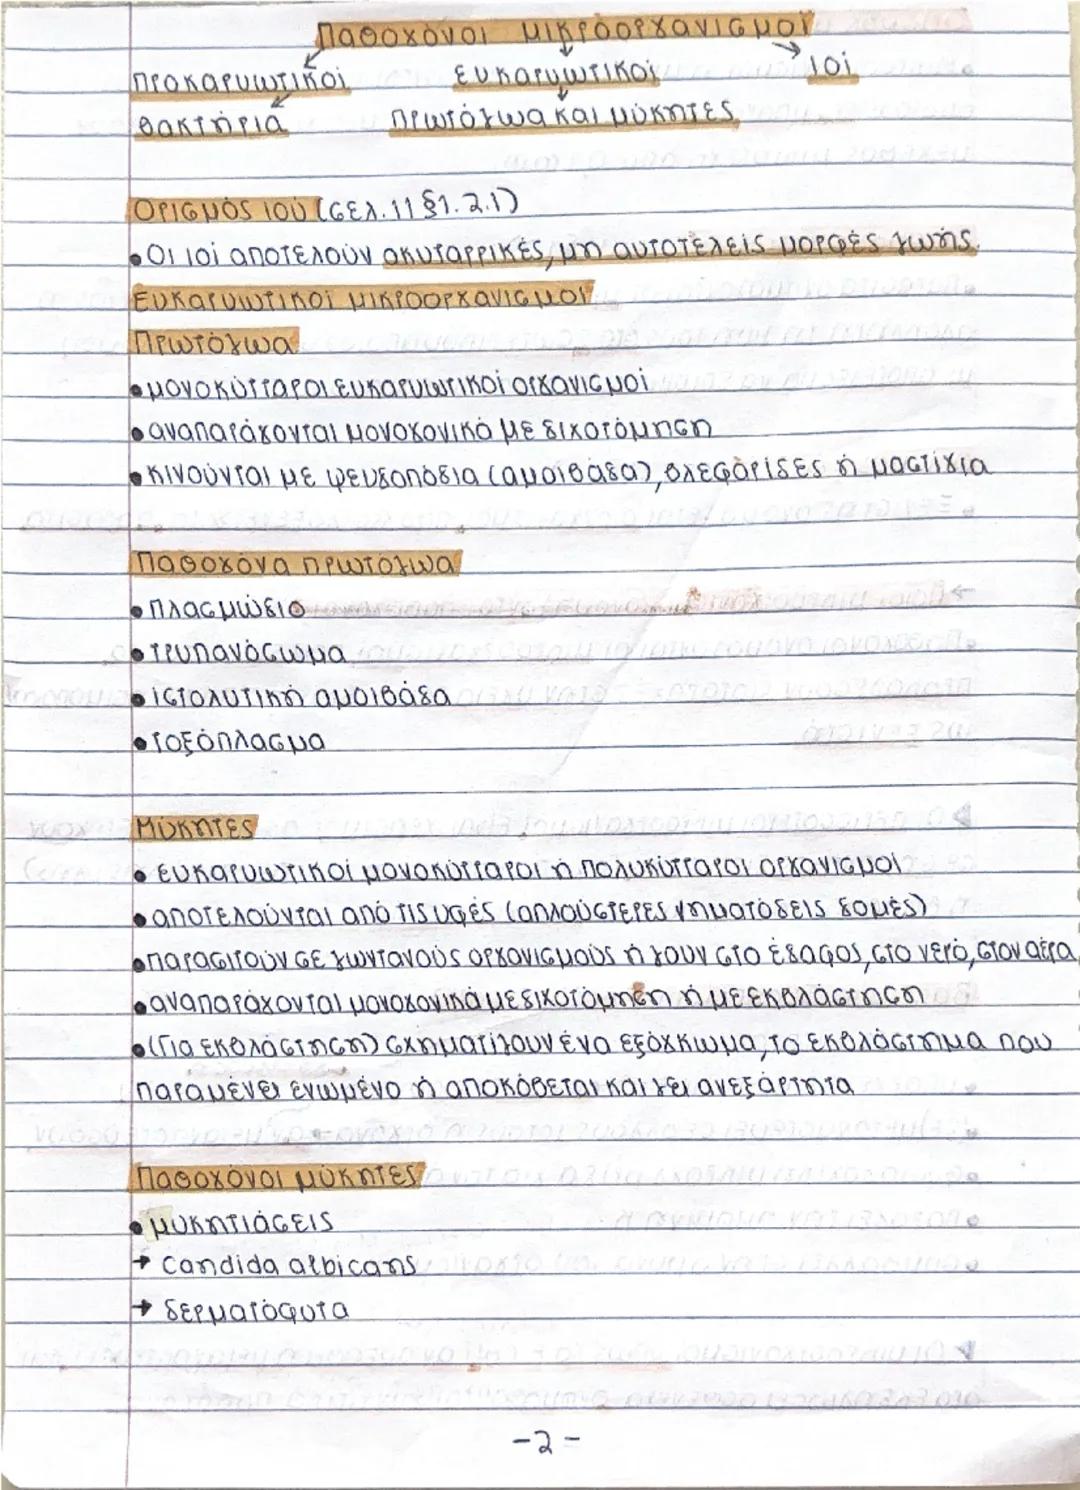 Παθογόνοι μικροοργανισμοί
προκαρυωτικοί ευκαρυωτικοί ιοί
βακτήρια πρωτόζωα και μύκητες
Ορισμός ιού (σελ. 11 §1.2.1)
• Οι ιοί αποτελούν ακυτταρρικές, μη αυτοτελείς μορφές ζωής.
Ευκαρυωτικοί μικροοργανισμοί
Πρωτόζωα
• μονοκύτταροι ευκαρυωτικοί οργανισμοί
• αναπαράγονται μονογονικά με διχοτόμηση
• κινούνται με ψευδοπόδια (αμοιβάδα), βλεφαρίδες ή μαστίγια
Παθογόνα πρωτόζωα
• πλασμώδιο
• τρυπανόσωμα
• ιστολυτική αμοιβάδα
• τοξόπλασμα
Μύκητες
• ευκαρυωτικοί μονοκύτταροι ή πολυκύτταροι οργανισμοί
• αποτελούνται από τις υφές (απλούστερες νηματόδεις δομές)
• παρασιτούν σε ζωντανούς οργανισμούς ή ζουν στο έδαφος, στο νερό, στον αέρα
• αναπαράγονται μονογονικά με διχοτόμηση ή με εκβλάστηση
• (Για εκβλάστηση) σχηματίζουν ένα εξόγκωμα, το εκβλάστημα που
παραμένει ενωμένο ή αποκόβεται και ζει ανεξάρτητα
Παθογόνοι μύκητες
• μυκητιάσεις
→ candida albicans
→ δερματόφυτα
-2-